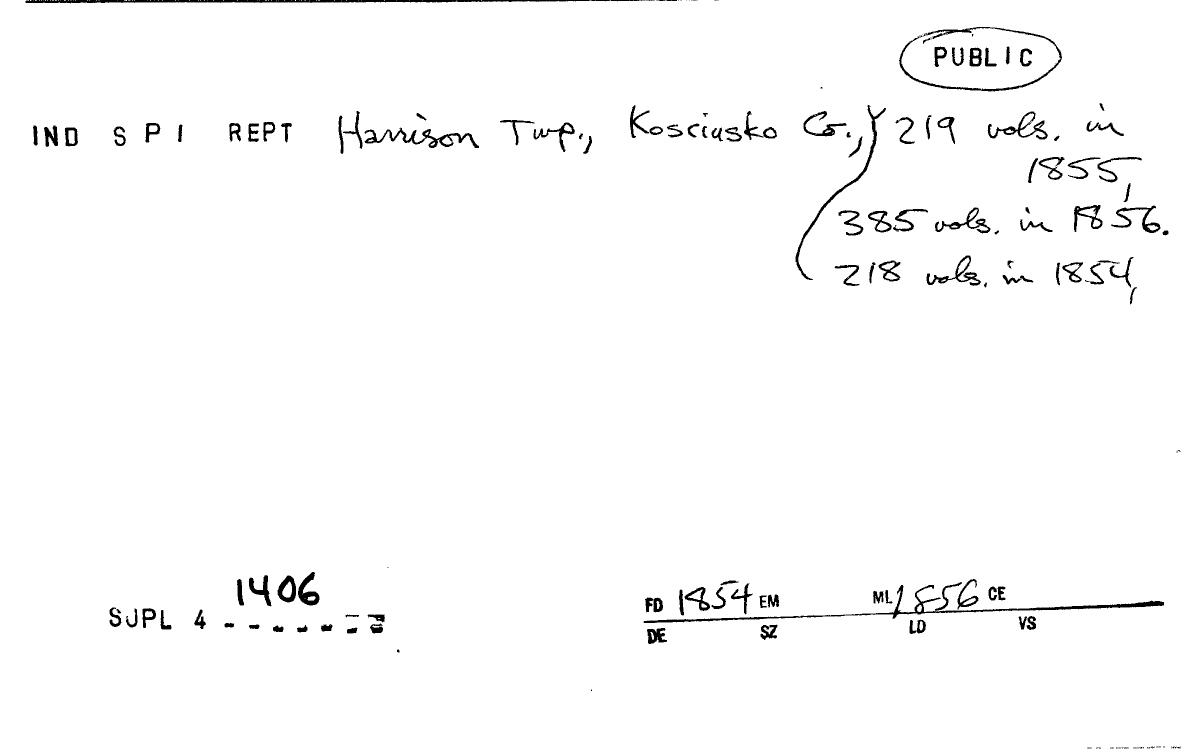 PUBLIC
IND S P I REPT Harrison Twp., Kosciusko Co., 219 vols. in
1855,
385 vols. in 1856.
218 vols. in 1854,
1406
SJPL 4
FD 1854 EM ML 1856 CE
DE SZ LD VS